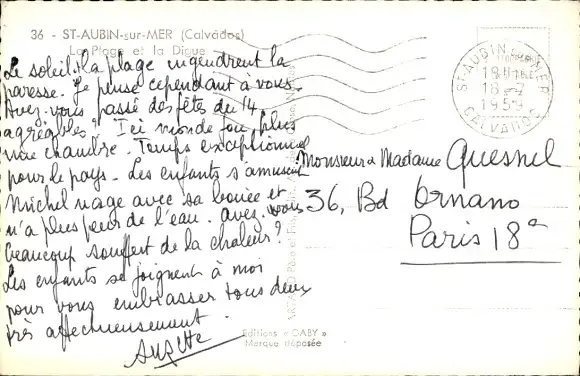 36 - ST-AUBIN-sur-MER (Calvados)
La Plage et la Digue
Le soleil, la plage engendrent la
paresse. Je pense cependant à vous.
Avez-vous passé des fêtes du 14
agréables? Ici monde fou, plus
une chambre. Temps exceptionnel
pour le pays. Les enfants s'amusent
Michel nage avec sa bouée et
n'a plus peur de l'eau. Avez-vous
beaucoup souffert de la chaleur?
Les enfants se joignent à moi
pour vous embrasser tous deux
très affectueusement.
Suzette
Editions « GABY »
Marque déposée
ST-AUBIN MER
18 H
18 -7
1959
CALVADOS
Monsieur & Madame Quesnel
36, Bd Ornano
Paris 18e